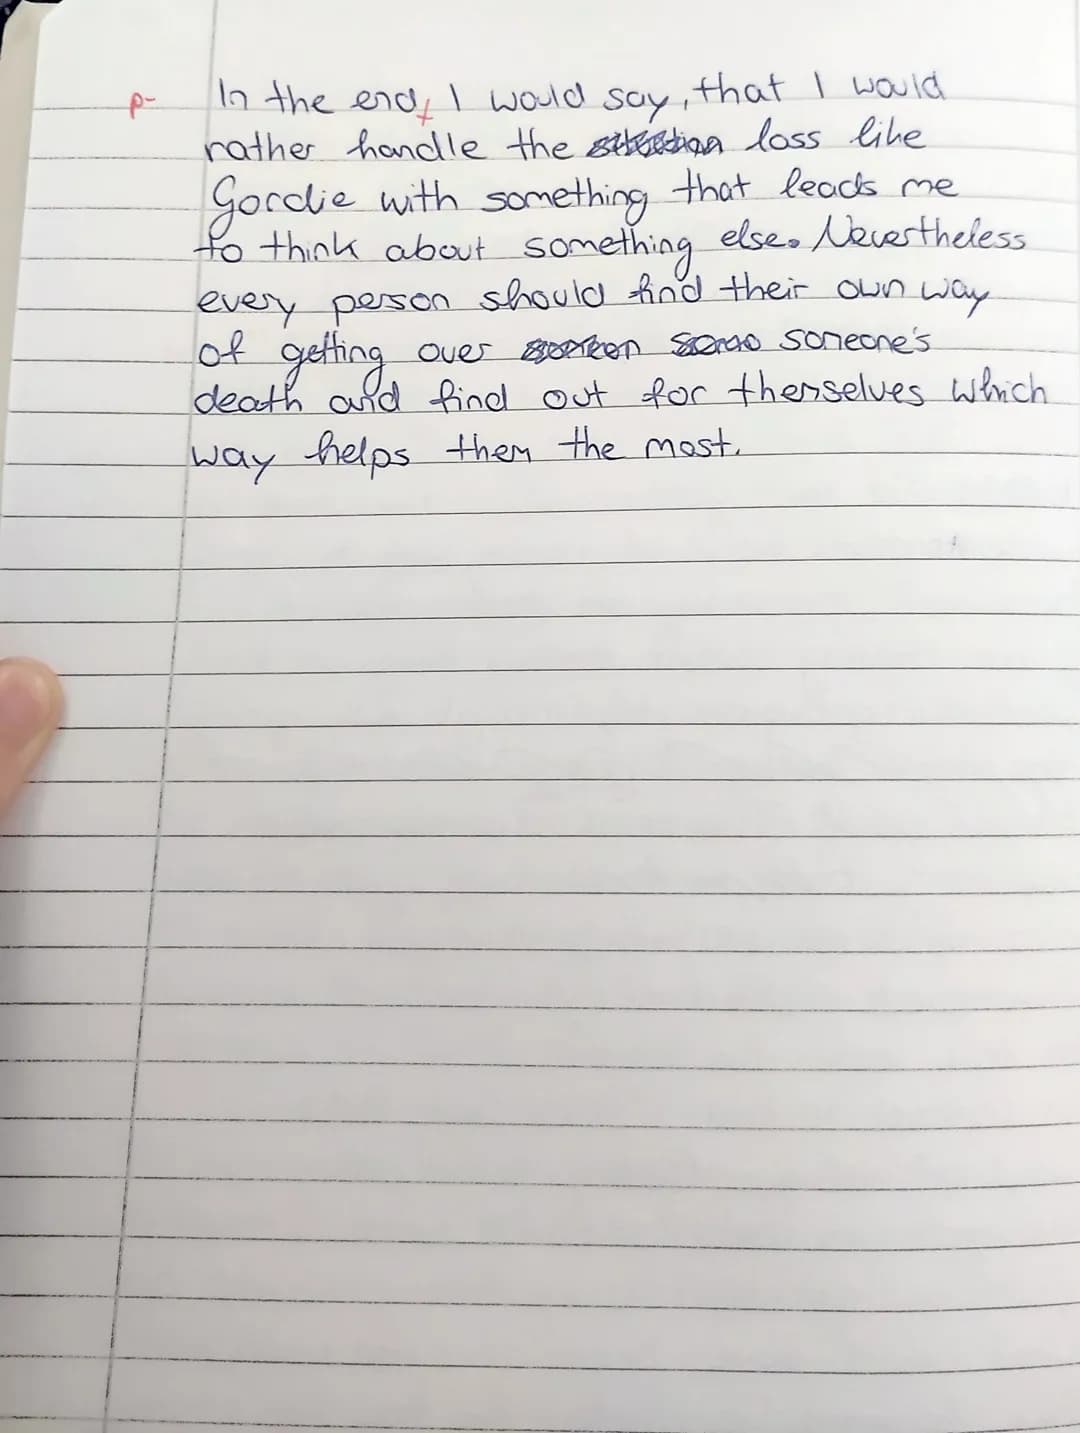 p- In the end, I would say, that I would
rather handle the loss like
Gordie with something that leads me
to think about something else. Nevertheless
every person should find their own way
of getting over someone's
death and find out for themselves which
way helps them the most.